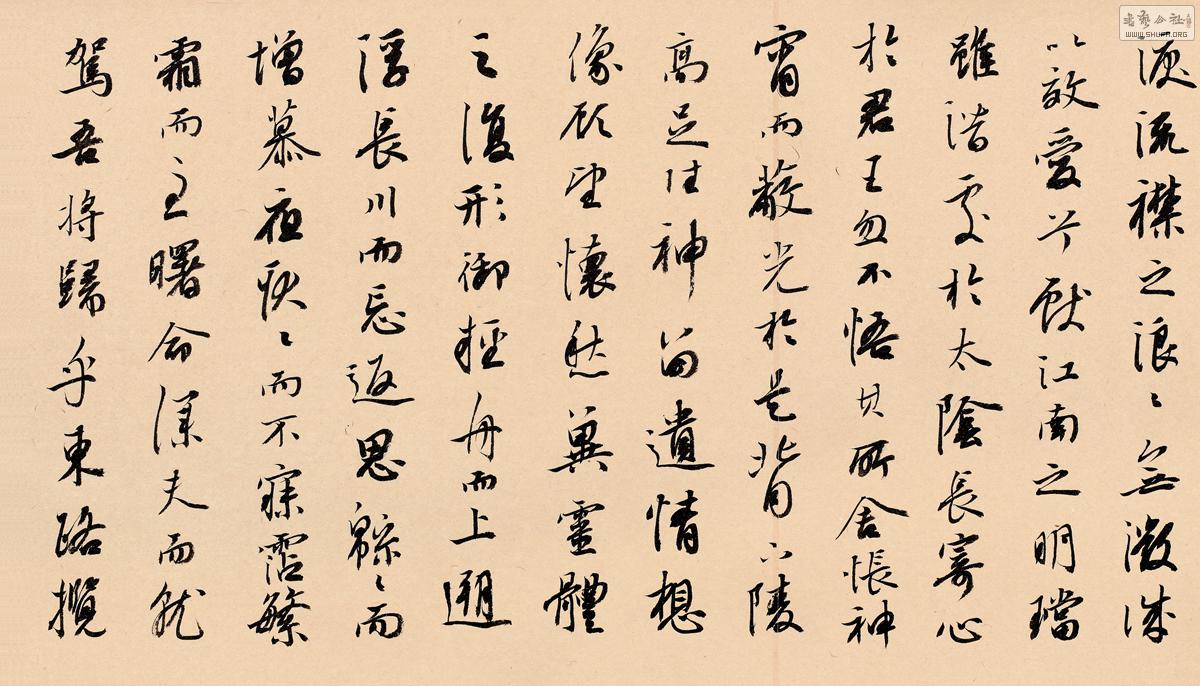 淚流襟之浪〻無微誠
以效愛兮獻江南之明璫
雖潛處於太陰長寄心
於君王忽不悟其所舍悵神
宵而蔽光於是背下陵
高足往神留遺情想
像顧望懷愁冀靈體
之復形御輕舟而上遡
浮長川而忘返思綿〻而
增慕夜耿〻而不寐霑繁
霜而至曙命僕夫而就
駕吾將歸乎東路攬
WWW.SHUFA.ORG